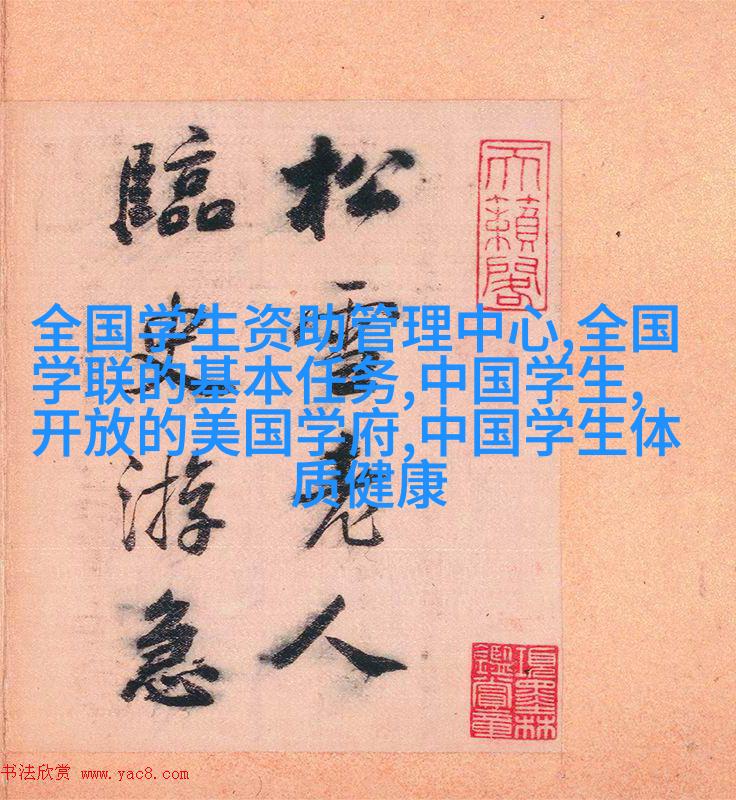 天籟閣
松雪老人
臨史游急
全国学生资助管理中心,全国
学联的基本任务,中国学生,
开放的美国学府,中国学生体
质健康
項墨林
鑑賞章
书法欣赏 www.yac8.com